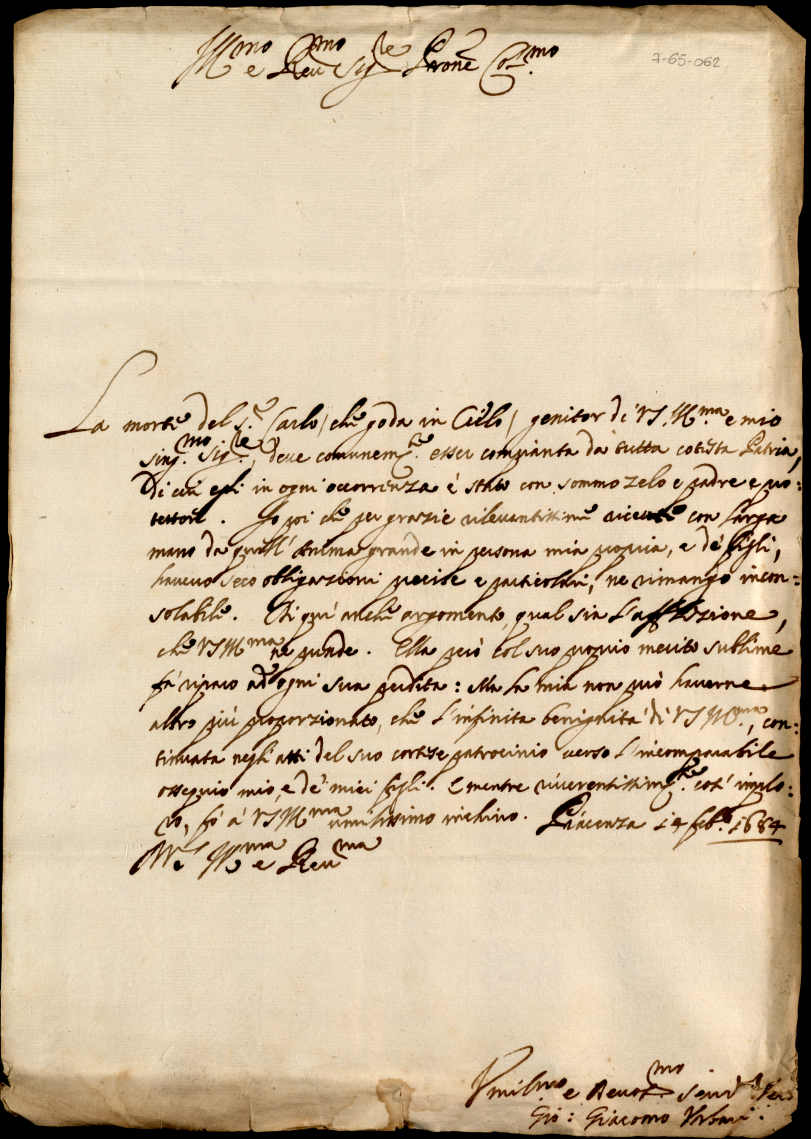 Ill.mo e Reu.mo Sig.re P.rone Col.mo
7-65-062
La morte del S.r Carlo, che goda in Cielo, genitor di VS. Ill.ma e mio
sing.mo Sig.re, deve comunem.te esser compianta da tutta cotesta Patria,
di cui egli in ogni occorrenza è stato con sommo zelo e padre e pro:
tettore. Io poi che per grazie rileuantissime riceuute con larga
mano da quell' Anima grande in persona mia propria, e de' figli,
haueuo seco obligazioni precise e particolari, ne rimango incon:
solabile. Di qui anche argomento, qual sia l'afflizione,
che VS Ill.ma ne prende. Ella però col suo proprio merito sublime
fà riparo ad ogni sua perdita: Ma la mia non può hauerne
altro più proporzionato, che l'infinita benignità di VS Ill.ma, con:
tinuata negli atti del suo cortese patrocinio verso l'incomparabile
ossequio mio, e de' miei figli. E mentre riuerentissimam.te cosí implo:
ro, fò à VS Ill.ma umilissimo inchino. Piacenza 14 feb.o 1684
VS Ill.ma e Reu.ma
Umil.mo e Deuot.mo Seru.re
Gio: Giacomo